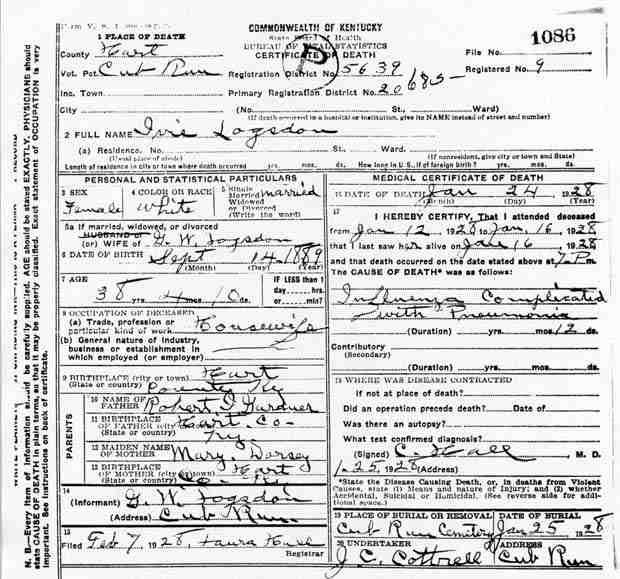 COMMONWEALTH OF KENTUCKY
State Board of Health
BUREAU OF VITAL STATISTICS
CERTIFICATE OF DEATH
1086
1 PLACE OF DEATH
County Hart
File No.
Vot. Pct. Cub Run
Registration District No. 5639
Registered No. 9
Inc. Town
Primary Registration District No. 20685-
City (No. St., Ward)
(If death occurred in a hospital or institution, give its NAME instead of street and number)
2 FULL NAME Ivie Logsdon
(a) Residence. No. St., Ward.
(Usual place of abode) (If nonresidens, give city or town and State)
Length of residence in city or town where death occurred yrs. mos. ds. How long in U.S., if of foreign birth? yrs. mos. ds.
PERSONAL AND STATISTICAL PARTICULARS
3 SEX
Female
4 COLOR OR RACE
White
5 Single
Married
Widowed
or Divorced
(Write the word)
married
5a If married, widowed, or divorced
HUSBAND of
(or) WIFE of G. W. Logsdon
6 DATE OF BIRTH Sept 14 1889
(Month) (Day) (Year)
7 AGE
38 yrs. 4 mos. 10 ds.
IF LESS than 1
day.......hrs.
or.......min?
8 OCCUPATION OF DECEASED
(a) Trade, profession or
particular kind of work Housewife
(b) General nature of industry,
business or establishment in
which employed (or employer)
9 BIRTHPLACE (city or town) Hart
(State or country) County Ky
PARENTS
10 NAME OF
FATHER Robert Gardner
11 BIRTHPLACE
OF FATHER (city Hart Co-
(State or country) Ky
12 MAIDEN NAME
OF MOTHER Mary Dorsey
13 BIRTHPLACE
OF MOTHER (city or town) Hart
(State or country) Co- Ky
14
(Informant) G. W. Logsdon
(Address) Cub Run
15
Filed Feb 7, 1928, Laura
Registrar
MEDICAL CERTIFICATE OF DEATH
16 DATE OF DEATH Jan 24 1928
(Month) (Day)
17
I HEREBY CERTIFY, That I attended deceased
from Jan 12 1928 to Jan. 16, 1928
that I last saw her alive on Jan 16, 1928
and that death occurred on the date stated above at P.m.
The CAUSE OF DEATH* was as follows:
Influenza Complicated
with Pneumonia
(Duration) yrs. mos. 12 ds.
Contributory
(Secondary)
(Duration) yrs. mos. ds.
18 WHERE WAS DISEASE CONTRACTED
if not at place of death?
Did an operation precede death? Date of
Was there an autopsy?
What test confirmed diagnosis?
(Signed) C. Hall M. D.
1-25, 1928 (Address)
*State the Disease Causing Death, or, in deaths from Violent
Causes, state (1) Means and nature of Injury; and (2) whether
Accidental, Suicidal or Homicidal. (See reverse side for addi-
tional space.)
19 PLACE OF BURIAL OR REMOVAL DATE OF BURIAL
Cub Run Cemetery Jan 25 1928
20 UNDERTAKER ADDRESS
J. C. Cottrell Cub Run
N. B.—Every item of information should be carefully supplied. AGE should be stated EXACTLY. PHYSICIANS should
state CAUSE OF DEATH in plain terms, so that it may be properly classified. Exact statement of OCCUPATION is very
important. See instructions on back of certificate.